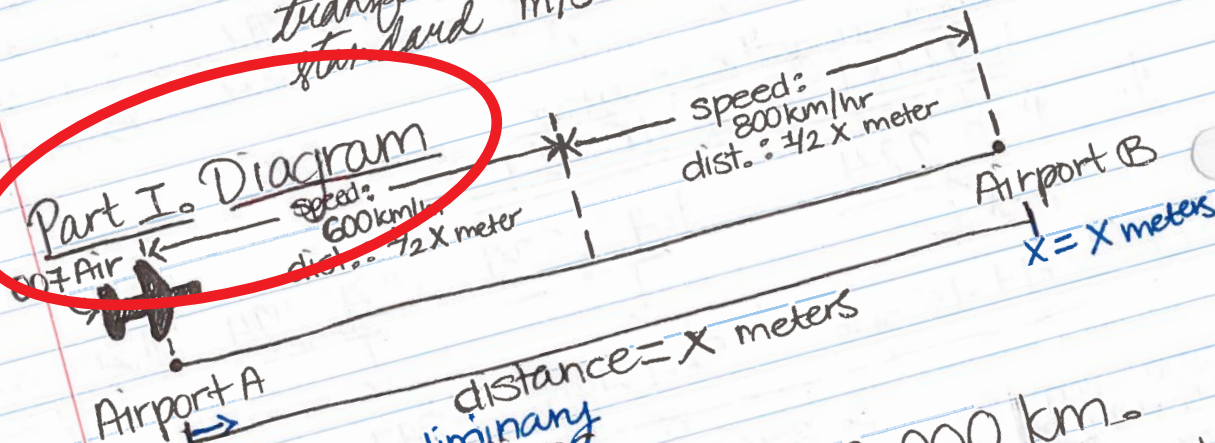 standard m/s
Part I. Diagram
speed:
600 km/hr
dist.: 1/2 X meter
speed:
800 km/hr
dist.: 1/2 X meter
007 Air
Airport B
X = X meters
Airport A
distance = X meters
km.